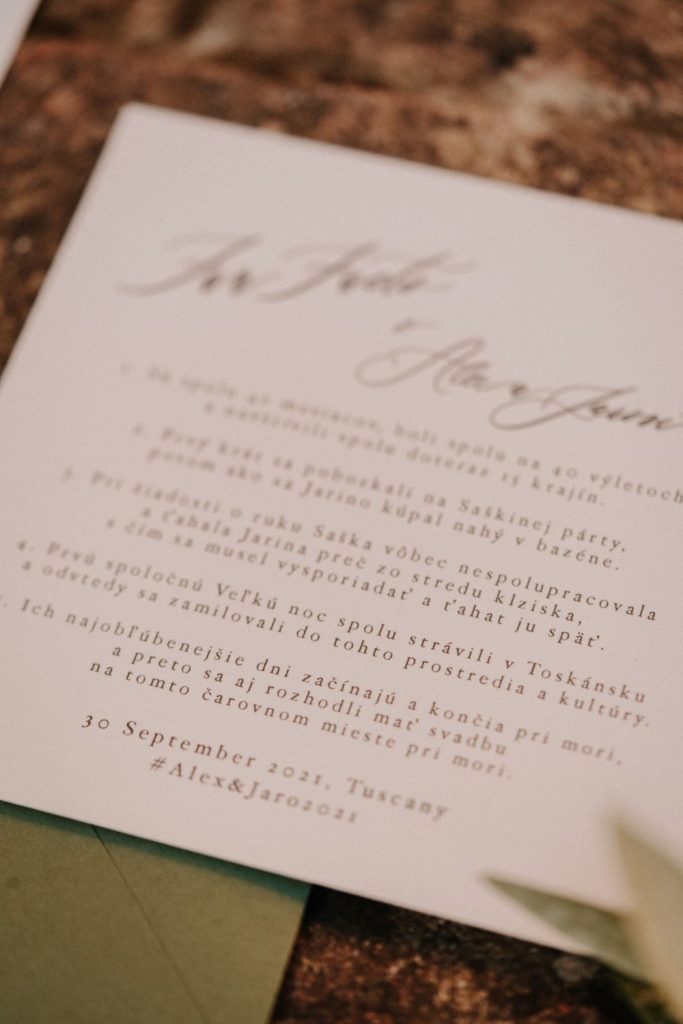 Fun Facts
o
1. Sú spolu 42 mesiacov, boli spolu na 40 výletoch
a navštívili spolu doteraz 15 krajín.
2. Prvý krát sa pobozkali na Saškinej párty,
potom ako sa Jarino kúpal nahý v bazéne.
3. Pri žiadosti o ruku Saška vôbec nespolupracovala
a ťahala Jarina preč zo stredu klziska,
s čím sa musel vysporiadať a ťahat ju späť.
4. Prvú spoločnú Veľkú noc spolu strávili v Toskánsku
a odvtedy sa zamilovali do tohto prostredia a kultúry.
5. Ich najobľúbenejšie dni začínajú a končia pri mori,
a preto sa aj rozhodli mať svadbu
na tomto čarovnom mieste pri mori.
30 September 2021, Tuscany
#Alex&Jaro2021